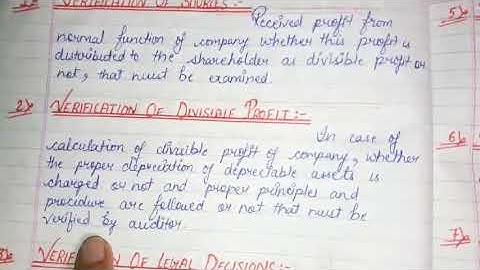 VERIFICATION OF SOURCES:-
Received profit from
normal function of company whether this profit is
distributed to the shareholder as divisible profit or
not, that must be examined.
2) VERIFICATION OF DIVISIBLE PROFIT:-
In case of
calculation of divisible profit of company, whether
the proper depreciation of depreciable assets is
charged or not and proper principles and
procedure are followed or not that must be
verified by auditor.
VERIFICATION OF LEGAL DECISIONS:-
5)
6)
7)